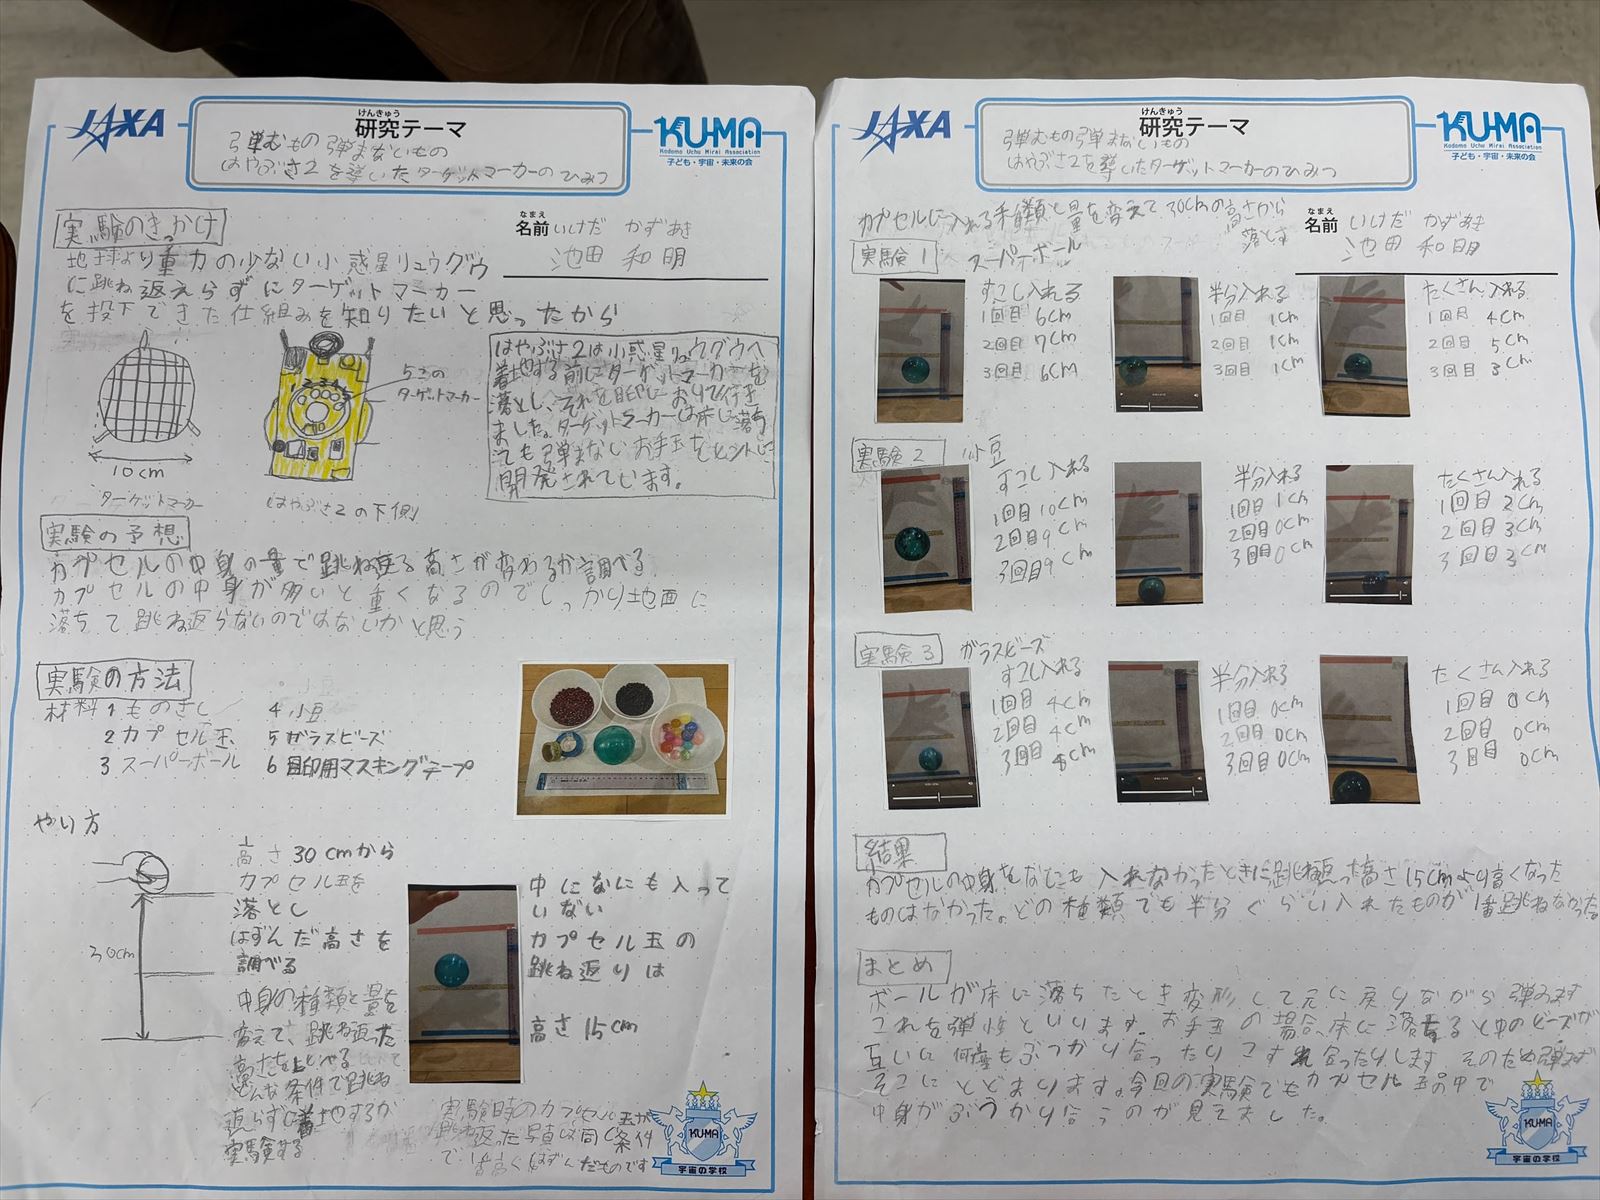 JAXA
けんきゅう
研究テーマ
KU-MA
Kodomo Uchu Mirai Association
子ども・宇宙・未来の会
弾むもの弾まないもの
はやぶさ2を導いたターゲットマーカーのひみつ
実験のきっかけ
なまえ
名前 いけだ かずあき
池田 和明
地球より重力の少ない小惑星リュウグウ
に跳ね返えらずにターゲットマーカー
を投下できた仕組みを知りたいと思ったから
5さの
ターゲットマーカー
10cm
ターゲットマーカー
はやぶさ2の下側
はやぶさ2は小惑星リュウグウへ
着地する前にターゲットマーカーを
落とし、それを目印におりて行き
ました。ターゲットマーカーは床に落ち
ても弾まないお手玉をヒントに
開発されています。
実験の予想
カプセルの中身の量で跳ね返る高さが変わるか調べる
カプセルの中身が多いと重くなるのでしっかり地面に
落ちて跳ね返らないのではないかと思う
実験の方法
材料 1 ものさし 4 小豆
2 カプセル玉 5 ガラスビーズ
3 スーパーボール 6 目印用マスキングテープ
やり方
30cm
高さ30cmから
カプセル玉を
落とし
はずんだ高さを
調べる
中身の種類と量を
変えて、跳ね返った
高さを
どんな条件で跳ね
返らずに着地するか
実験する
中になにも入って
いない
カプセル玉の
跳ね返りは
高さ15cm
実験時のカプセル玉が
跳ね返った写真は同じ条件
で1番高くはずんだものです
KU-MA
宇宙の学校
JAXA
けんきゅう
研究テーマ
KU-MA
Kodomo Uchu Mirai Association
子ども・宇宙・未来の会
弾むもの弾まないもの
はやぶさ2を導いたターゲットマーカーのひみつ
カプセルに入れる種類と量を変えて、30cmの高さから
落とす
なまえ
名前 いけだ かずあき
池田 和明
実験1 スーパーボール
すこし入れる
1回目 6cm
2回目 7cm
3回目 6cm
半分入れる
1回目 1cm
2回目 1cm
3回目 1cm
たくさん入れる
1回目 4cm
2回目 5cm
3回目 3cm
実験2 小豆
すこし入れる
1回目 10cm
2回目 9cm
3回目 9cm
半分入れる
1回目 1cm
2回目 0cm
3回目 0cm
たくさん入れる
1回目 2cm
2回目 3cm
3回目 3cm
実験3 ガラスビーズ
すこし入れる
1回目 4cm
2回目 4cm
3回目 cm
半分入れる
1回目 0cm
2回目 0cm
3回目 0cm
たくさん入れる
1回目 0cm
2回目 0cm
3回目 0cm
結果
カプセルの中身をなにも入れなかったときに跳ね返った高さ15cmより高くなった
ものはなかった。どの種類でも半分ぐらい入れたものが1番跳ねなかった
まとめ
ボールが床に落ちたとき変形して元に戻りながら弾みます
これを弾性といいます。お手玉の場合、床に落ちると中のビーズが
互いに何度もぶつかり合ったりこすれ合ったりします そのため弾まず
そこにとどまります。今回の実験でもカプセル玉の中で
中身がぶつかり合うのが見えました。
KU-MA
宇宙の学校